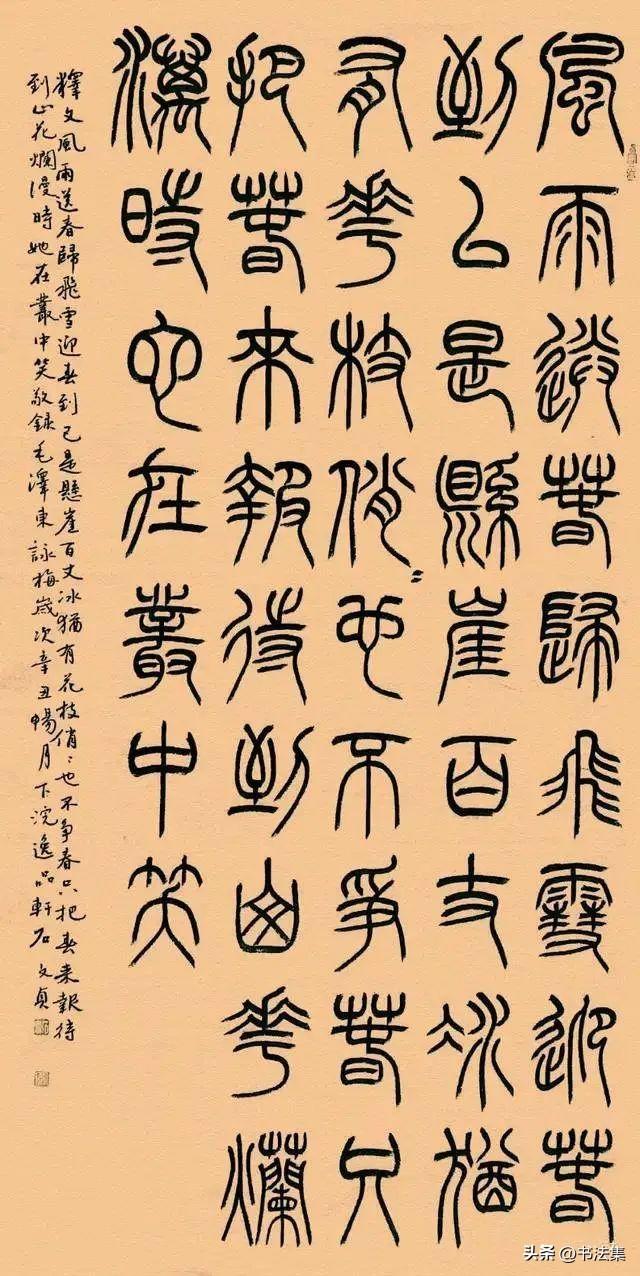 風雨送春歸飛雪迎春
到已是縣崖百丈冰猶
有花枝俏〻也不爭春只
把春來報待到山花爛
漫時她在叢中笑
釋文風雨送春歸飛雪迎春到已是懸崖百丈冰猶有花枝俏〻也不争春只把春来報待
到山花爛漫時她在叢中笑敬録毛澤東詠梅歲次辛丑暢月下浣逸品軒石文貞
头条@书法集